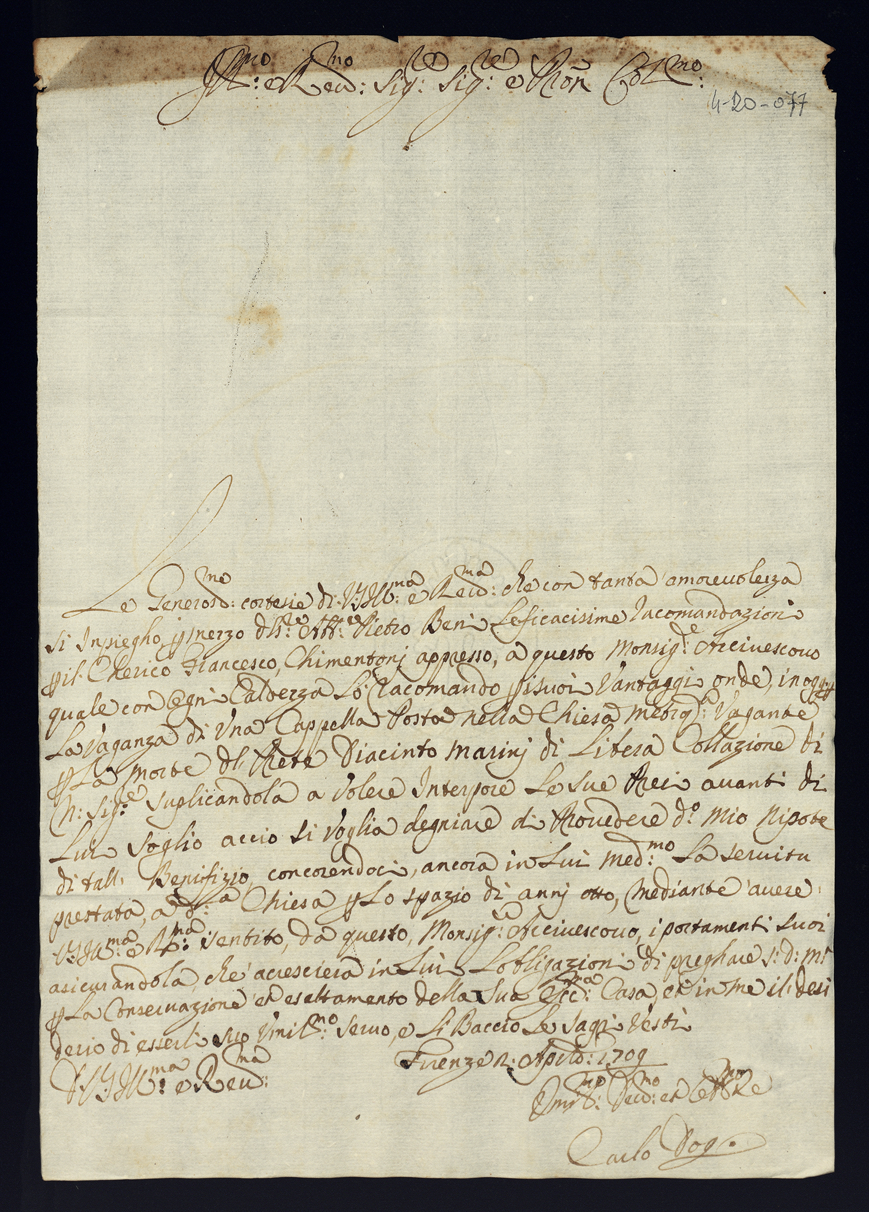 Ill:mo e Reu:mo Sig:re Sig:re e Pron Col:mo
4-20-077
Le Generos:me cortesie di VS Ill:ma e Reu:ma che con tanta amoreuolezza
si Inpiegho, p mezzo del Sr: Att:e Pietro Beni Leficacisime Racomandazioni
p il: Cherico Francesco, Chimentonj appresso, a questo Monsig:re Arciuescouo
quale con Ogni Caldezza Lo Racomando p i suoi Vantaggi onde, in oggi p
La Vaganza di Vna Cappella Posta nella Chiesa Vagante
p La Morte del Prete Diacinto Marinj di Libera Collazione di
M: Sig:re Suplicandola a Volere Interpore Le Sue Preci auanti di
Lui Soglio accio Si Voglia degniare di Prouedere d:o Mio Nipote
di tall: Benifizio, concorendoci, ancora in Lui Med:mo La Seruitu
prestata, a d:a Chiesa p Lo spazio di annj otto, Mediante auere
VS Ill:ma e R:ma Sentito, da questo, Monsig:re Arciuescouo, i portamenti Suoi
asicurandola, che acresciera in Lui Lobligazioni di preghare S: d: M:
p La Conseruazione et esaltamento della Sua Ecc:ma Casa, et in me il desi
derio di esserli suo Vmil:mo Seruo, e Li Baccio Le Sagre Vesti
D VS Ill:ma e Reu:ma
Firenze Aprile: 1709
Vmil:mo Deu:mo et
Carlo